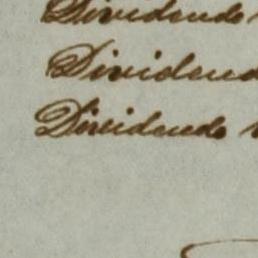 Dividendo
Dividend
Dividendo